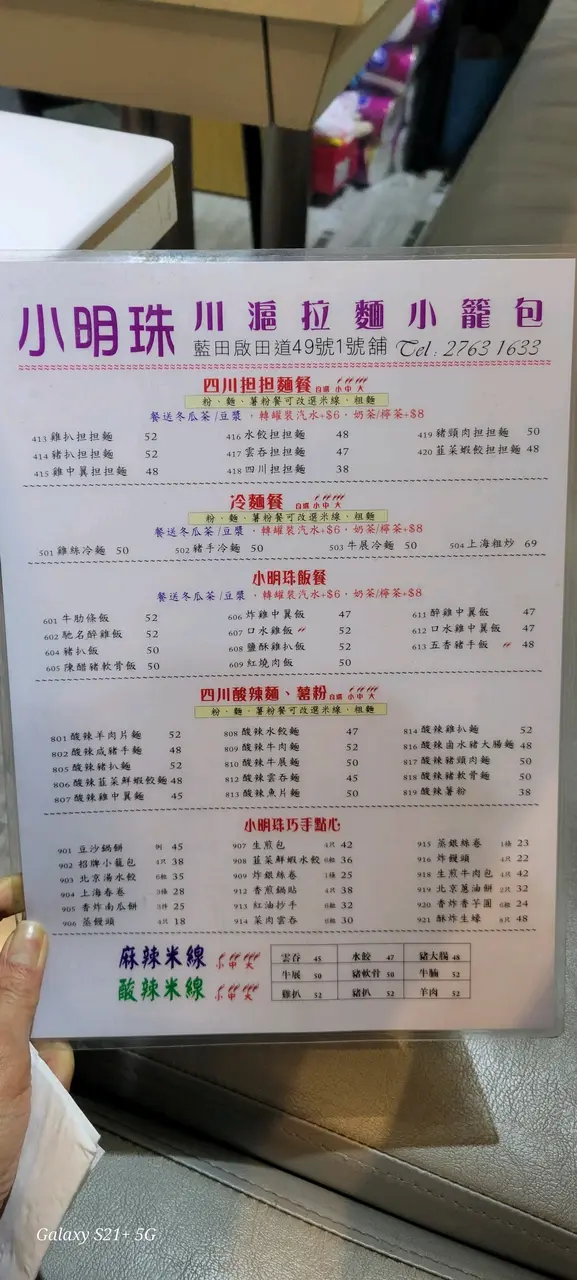 小明珠 川滬拉麵小籠包
藍田啟田道49號1號舖 Tel: 2763 1633
四川担担麵餐 自選 小 中 大
粉、麵、薯粉餐可改選米線、粗麵
餐送冬瓜茶/豆漿﹐轉罐裝汽水+$6﹐奶茶/檸茶+$8
413 雞扒担担麵 52 416 水餃担担麵 48 419 豬頸肉担担麵 50
414 豬扒担担麵 52 417 雲吞担担麵 47 420 韮菜蝦餃担担麵 48
415 雞中翼担担麵 48 418 四川担担麵 38
冷麵餐 自選 小 中 大
粉、麵、薯粉餐可改選米線、粗麵
餐送冬瓜茶/豆漿﹐轉罐裝汽水+$6﹐奶茶/檸茶+$8
501 雞絲冷麵 50 502 豬手冷麵 50 503 牛展冷麵 50 504 上海粗炒 69
小明珠飯餐
餐送冬瓜茶/豆漿﹐轉罐裝汽水+$6﹐奶茶/檸茶+$8
601 牛肋條飯 52 606 炸雞中翼飯 47 611 醉雞中翼飯 47
602 馳名醉雞飯 52 607 口水雞飯 52 612 口水雞中翼飯 47
604 豬扒飯 50 608 鹽酥雞扒飯 52 613 五香豬手飯 48
605 陳醋豬軟骨飯 50 609 紅燒肉飯 50
四川酸辣麵、薯粉 自選 小 中 大
粉、麵、薯粉餐可改選米線、粗麵
801 酸辣羊肉片麵 52 808 酸辣水餃麵 47 814 酸辣雞扒麵 52
802 酸辣咸豬手麵 48 809 酸辣牛肉麵 52 816 酸辣鹵水豬大腸麵 48
805 酸辣豬扒麵 52 810 酸辣牛展麵 50 817 酸辣豬頸肉麵 50
806 酸辣韮菜鮮蝦餃麵 48 812 酸辣雲吞麵 45 818 酸辣豬軟骨麵 50
807 酸辣雞中翼麵 45 813 酸辣魚片麵 50 819 酸辣薯粉 38
小明珠巧手點心
901 豆沙鍋餅 例 45 907 生煎包 4只 42 915 蒸銀絲卷 1條 23
902 招牌小籠包 4只 38 908 韮菜鮮蝦水餃 6粒 36 916 炸饅頭 4只 22
903 北京湯水餃 6粒 35 909 炸銀絲卷 1條 25 918 生煎牛肉包 4只 42
904 上海春卷 3條 28 912 香煎鍋貼 4只 38 919 北京蔥油餅 2只 32
905 香炸南瓜餅 3件 25 913 紅油抄手 6粒 32 920 香炸香芋圓 6粒 24
906 蒸饅頭 4只 18 914 菜肉雲吞 6粒 30 921 酥炸生蠔 8只 48
麻辣米線 小 中 大
酸辣米線 小 中 大
雲吞 45 水餃 47 豬大腸 48
牛展 50 豬軟骨 50 牛腩 52
雞扒 52 豬扒 52 羊肉 52
Galaxy S21+ 5G